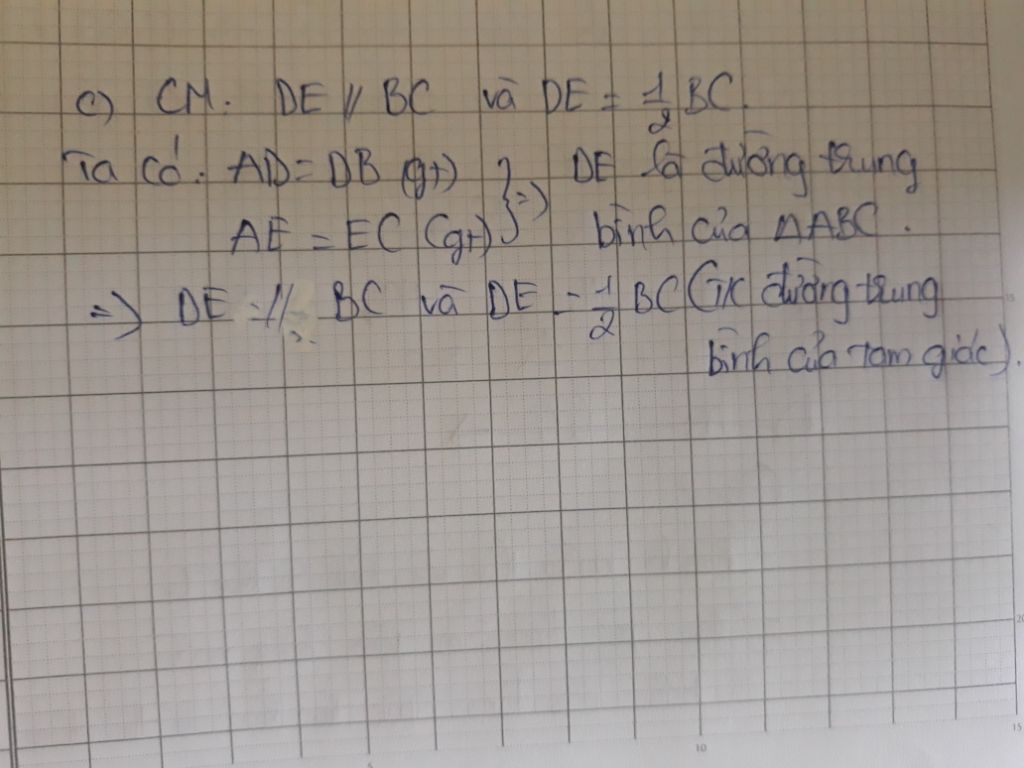 c) CM: DE // BC và DE = 1/2 BC.
Ta có: AD = DB (gt) } => DE là đường trung
AE = EC (gt) bình của ΔABC.
=> DE // BC và DE = 1/2 BC (T/c đường trung
bình của tam giác).
15
20
5
10
15